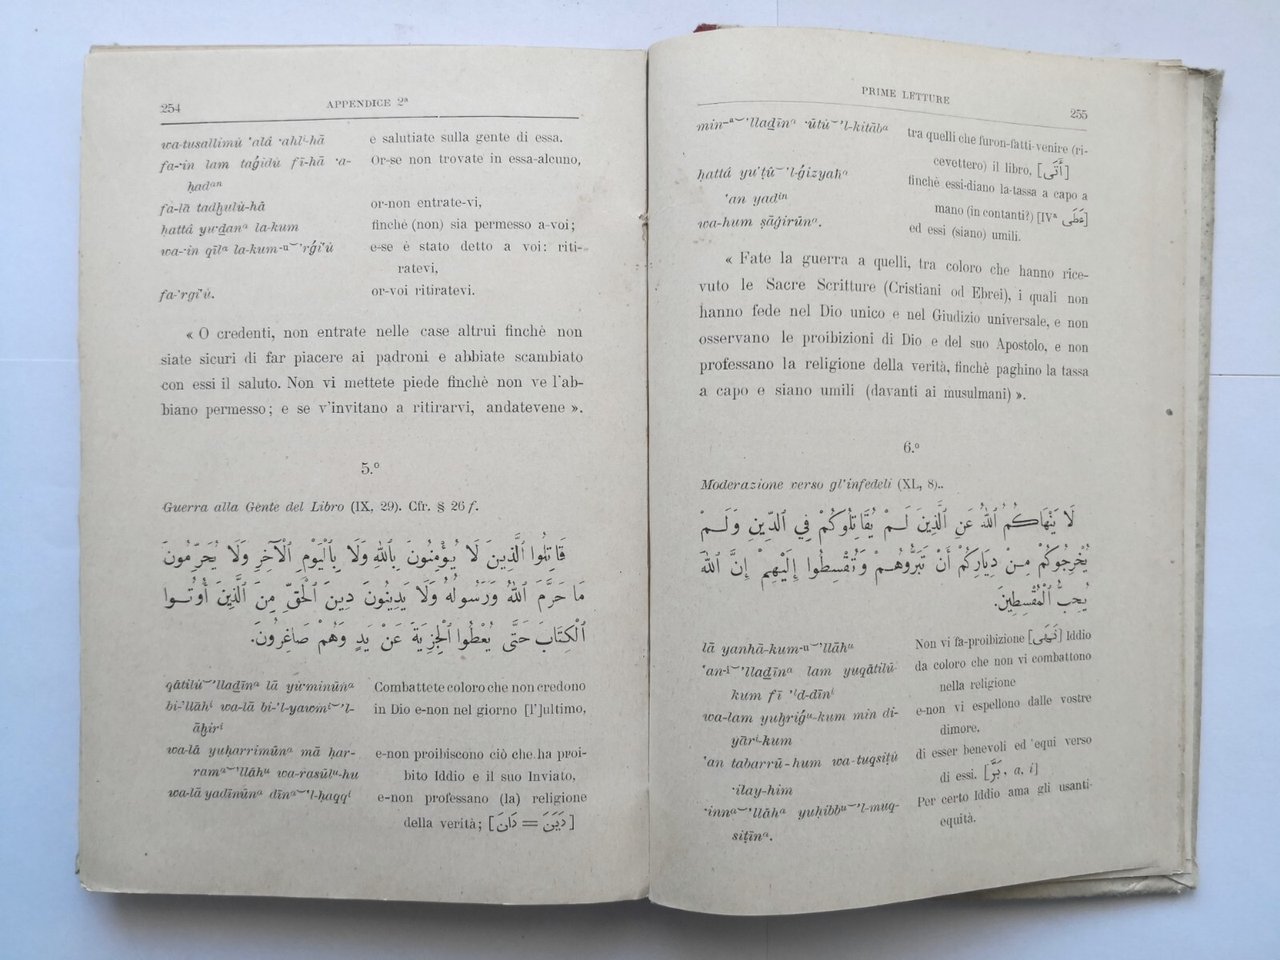 254
APPENDICE 2ª
wa-tusallimû ʽalá ʼahlⁱ-hā
e salutiate sulla gente di essa.
fa-ʼin lam taǵidû fī-hā ʼa-
Or-se non trovate in essa-alcuno,
ḥadᵃⁿ
fa-lā tadḫulû-hā
or-non entrate-vi,
ḥattá yuʼḏanᵃ la-kum
finchè (non) sia permesso a-voi;
wa-ʼin qīlᵃ la-kum-ᵘ‿ʼrǵiʽû
e-se è stato detto a voi: riti-
ratevi,
fa-ʼrgiʽû.
or-voi ritiratevi.
« O credenti, non entrate nelle case altrui finchè non
siate sicuri di far piacere ai padroni e abbiate scambiato
con essi il saluto. Non vi mettete piede finchè non ve l'ab-
biano permesso; e se v'invitano a ritirarvi, andatevene ».
5.º
Guerra alla Gente del Libro (IX, 29). Cfr. § 26 f.
قَاتِلُوا ٱلَّذِينَ لَا يُؤْمِنُونَ بِٱللّٰهِ وَلَا بِٱلْيَوْمِ ٱلْآخِرِ وَلَا يُحَرِّمُونَ
مَا حَرَّمَ ٱللّٰهُ وَرَسُولُهُ وَلَا يَدِينُونَ دِينَ ٱلْحَقِّ مِنَ ٱلَّذِينَ أُوتُوا
ٱلْكِتَابَ حَتَّى يُعْطُوا ٱلْجِزْيَةَ عَنْ يَدٍ وَهُمْ صَاغِرُونَ.
qātilû‿ʼllaḏīnᵃ lā yuʼminūnᵃ
Combattete coloro che non credono
bi-ʼllāhⁱ wa-lā bi-ʼl-yawmⁱ‿ʼl-
in Dio e-non nel giorno [l']ultimo,
āḫirⁱ
wa-lā yuḥarrimūnᵃ mā ḥar-
e-non proibiscono ciò che ha proi-
ramᵃ‿ʼllāhᵘ wa-rasūlᵘ-hu
bito Iddio e il suo Inviato,
wa-lā yadīnūnᵃ dīnᵃ‿ʼl-ḥaqqⁱ
e-non professano (la) religione
della verità; [دَيَنَ = دَانَ]
PRIME LETTURE
255
min-ᵃ‿ʼllaḏīnᵃ ʼûtû‿ʼl-kitābᵃ
tra quelli che furon-fatti-venire (ri-
cevettero) il libro, [أَتَى]
ḥattá yuʽṭû‿ʼl-ǵizyahᵃ
finchè essi-diano la-tassa a capo a
ʽan yadⁱⁿ
mano (in contanti?) [IVª عَطَى]
wa-hum ṣāġirūnᵃ.
ed essi (siano) umili.
« Fate la guerra a quelli, tra coloro che hanno rice-
vuto le Sacre Scritture (Cristiani od Ebrei), i quali non
hanno fede nel Dio unico e nel Giudizio universale, e non
osservano le proibizioni di Dio e del suo Apostolo, e non
professano la religione della verità, finchè paghino la tassa
a capo e siano umili (davanti ai musulmani) ».
6.º
Moderazione verso gl'infedeli (XL, 8)..
لَا يَنْهَاكُمُ ٱللّٰهُ عَنِ ٱلَّذِينَ لَمْ يُقَاتِلُوكُمْ فِي ٱلدِّينِ وَلَمْ
يُخْرِجُوكُمْ مِنْ دِيَارِكُمْ أَنْ تَبَرُّوهُمْ وَتُقْسِطُوا إِلَيْهِمْ إِنَّ ٱللّٰهَ
يُحِبُّ ٱلْمُقْسِطِينَ.
lā yanhā-kum-ᵘ‿ʼllāhᵘ
Non vi fa-proibizione [نَهَى] Iddio
ʽan-ⁱ‿ʼllaḏīnᵃ lam yuqātilû
da coloro che non vi combattono
kum fī ʼd-dīnⁱ
nella religione
wa-lam yuḫriǵᵘ-kum min di-
e-non vi espellono dalle vostre
yārⁱ-kum
dimore,
ʼan tabarrū-hum wa-tuqsiṭû
di esser benevoli ed equi verso
ʼilay-him
di essi, [بَرَّ, a, i]
ʼinnᵃ‿ʼllāhᵃ yuḥibbᵘ‿ʼl-muq-
Per certo Iddio ama gli usanti-
siṭīnᵃ.
equità.